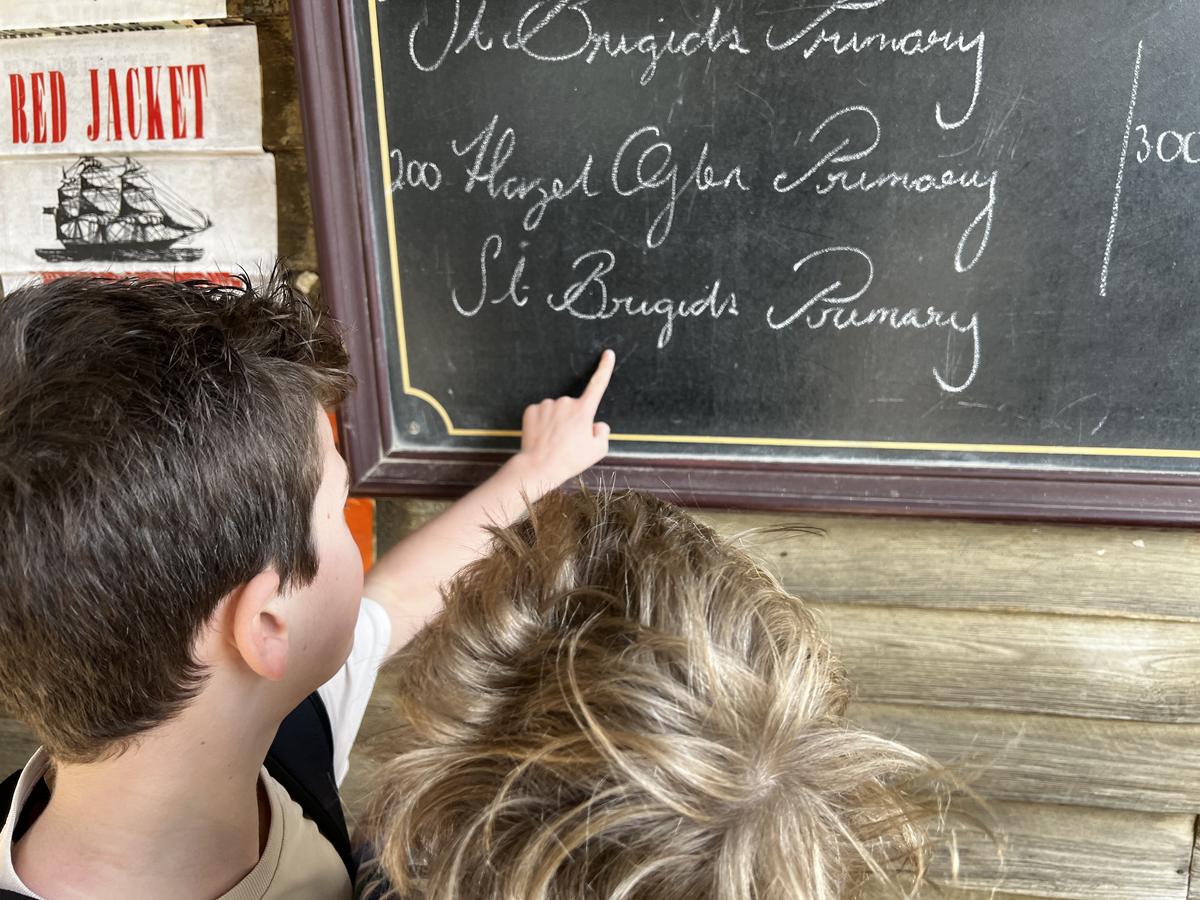 RED JACKET
St Brigids Primary
200 Hazel Glen Primary
300
St Brigids Primary